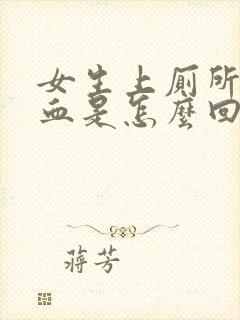 女生上厕所
血是怎麼回
蔣芳